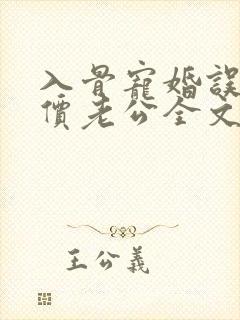 入骨寵婚誤
價老公全文
王公義